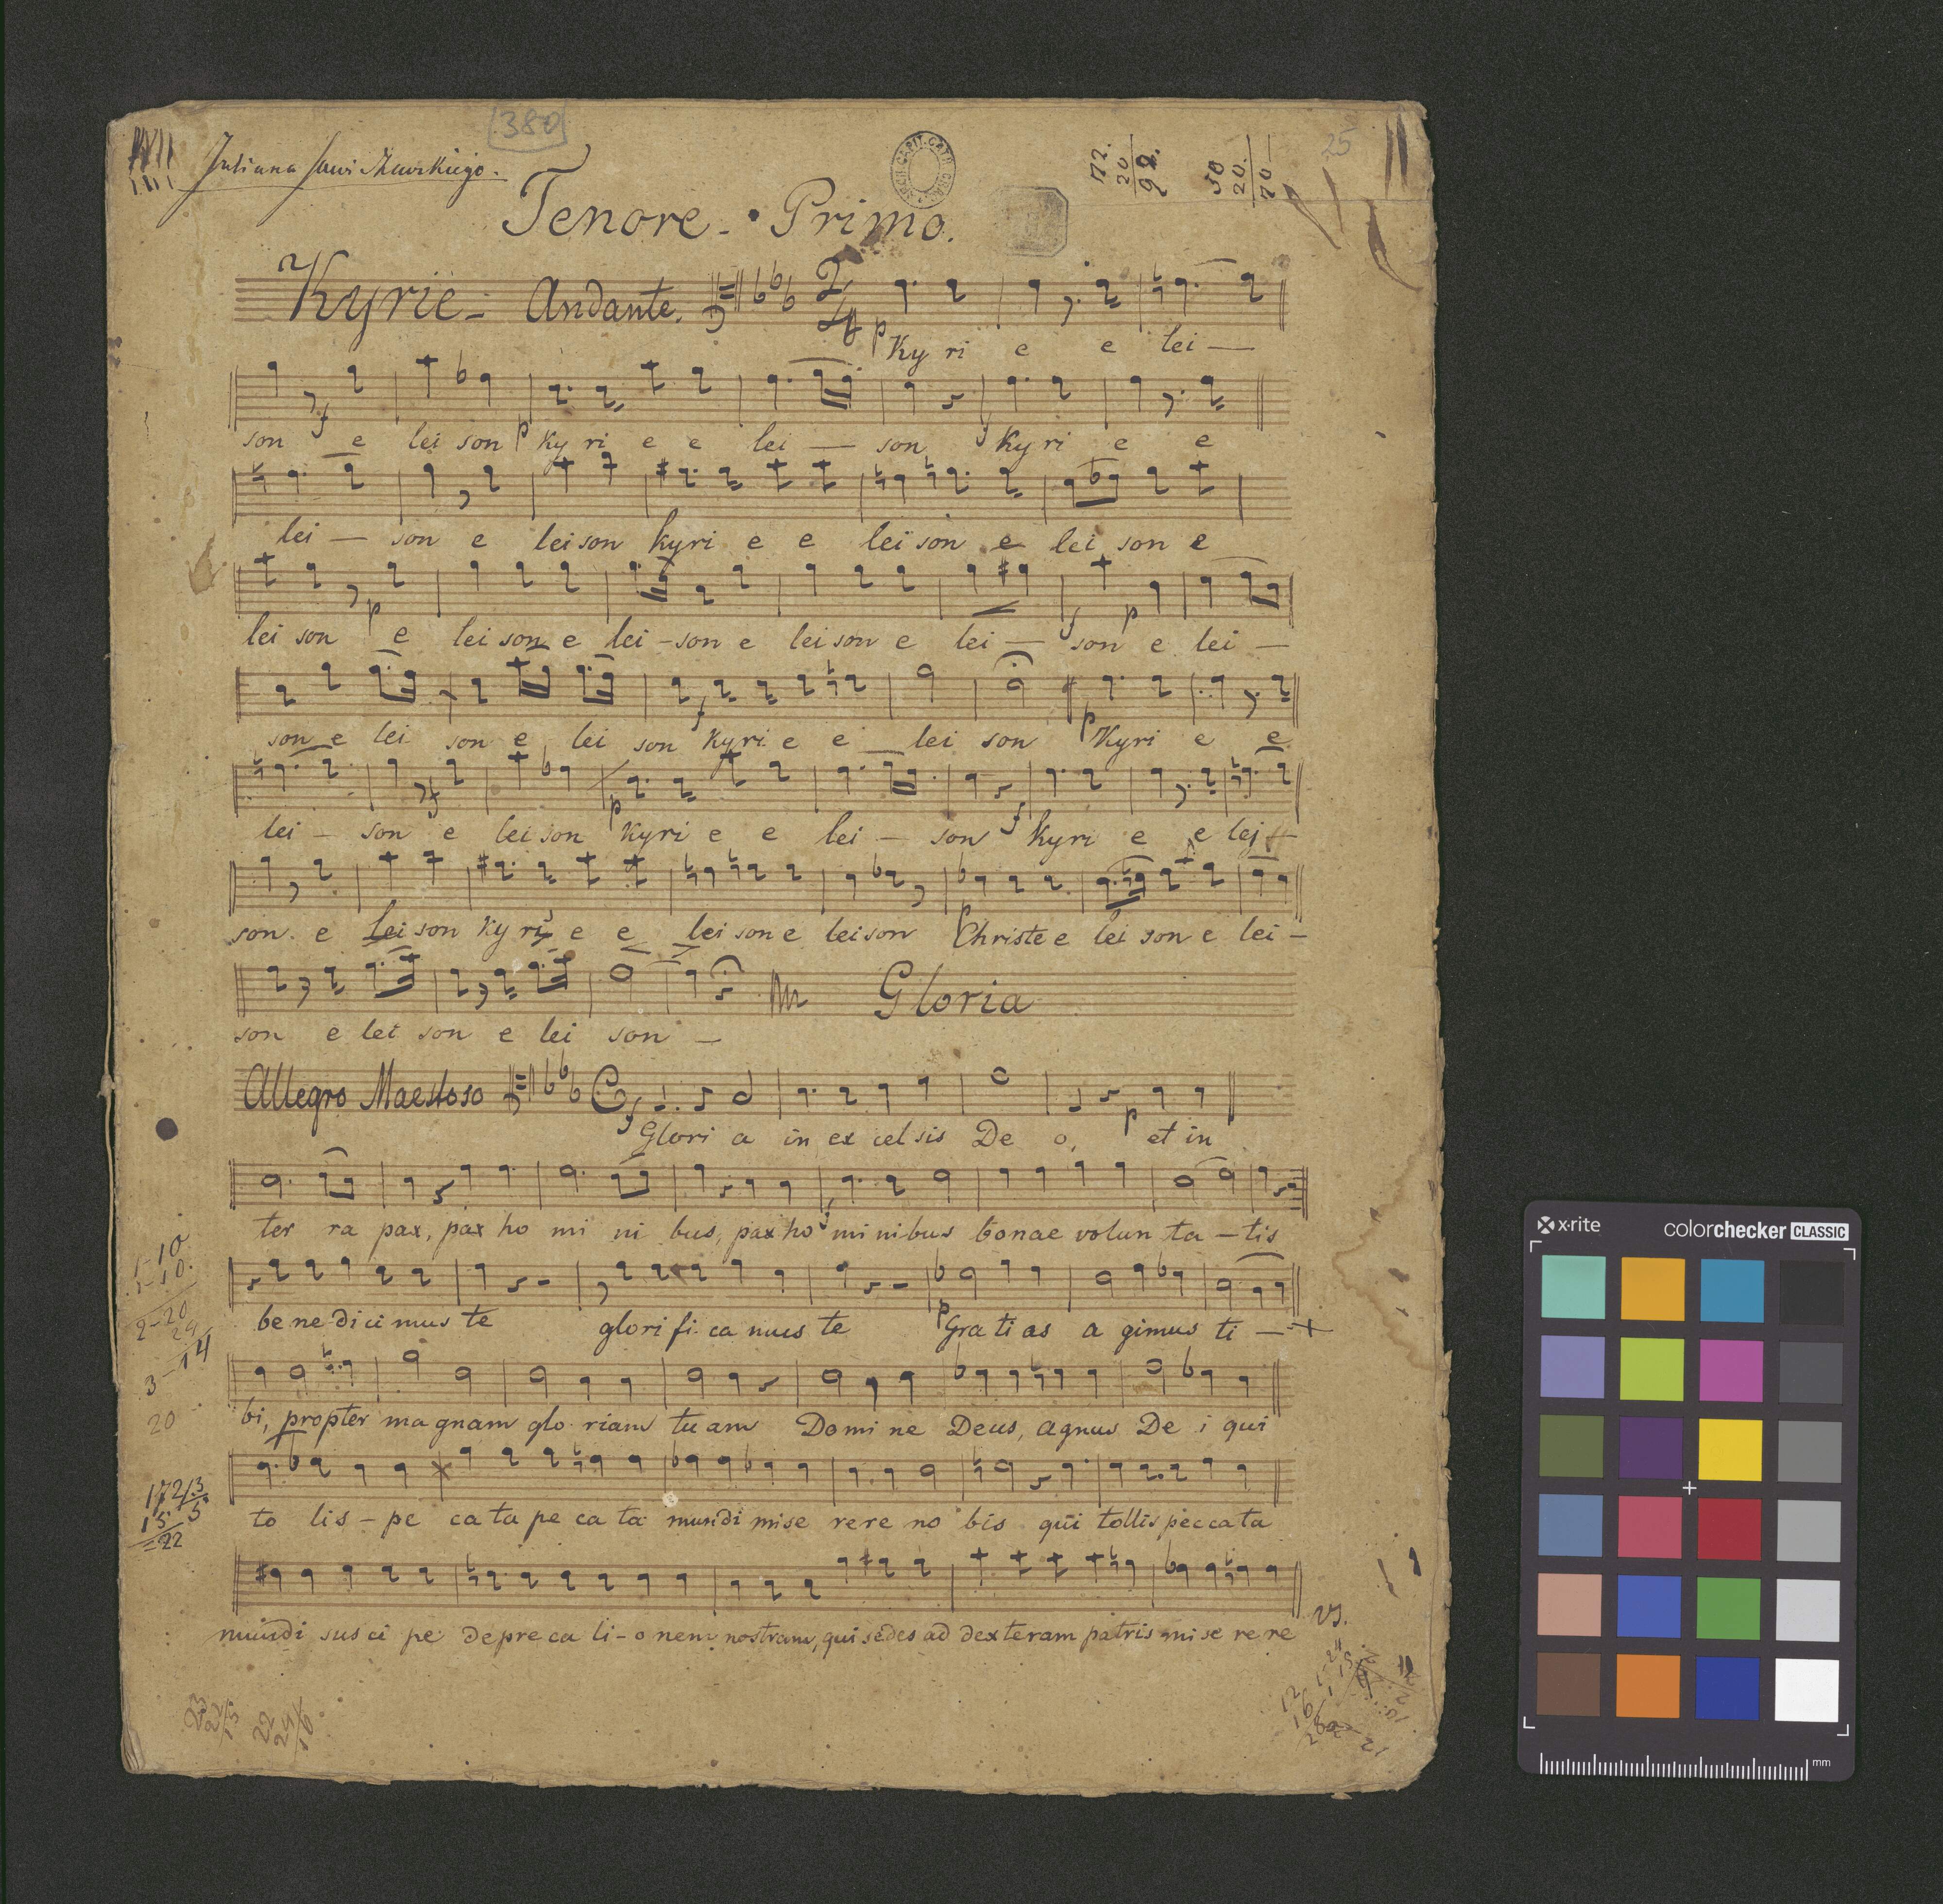 380
25
Juliana
172.
20
92.
50
20.
70 —
Tenore - Primo.
Kyrie - Andante. 2/4
p Ky ri e e lei —
son f e lei son p Ky ri e e lei — son f Ky ri e e
lei — son e lei son kyri e e lei son e lei son e
lei son p e lei son e lei - son e lei son e lei — f son p e lei —
son e lei son e lei son f Kyri e e — lei son p Kyri e e
lei — son f e lei son p Kyri e e lei — son f kyri e e lei
son e lei son Ky ri e e lei son e lei son p Christe e lei son e lei —
Gloria
son e lei son e lei son —
Allegro Maestoso C
f Glori a in ex cel sis De o, p et in
ter ra pax, pax ho mi ni bus, pax ho f mi nibus bonae volun ta — tis
be ne di ci mus te glori fi ca mus te p Gra ti as a gimus ti —
bi, propter ma gnam glo riam tu am Domi ne Deus, agnus De i qui
to lis - pe ca ta pe ca ta mundi mise rere no bis qui tollis peccata
mundi sus ci pe depre ca ti - o nem nostram, qui sedes ad dexteram patris mi se re re
vs.
1-10
1-10.
2-20
24
3-14
20
172/3
15 5
= 22
x·rite
colorchecker CLASSIC
mm